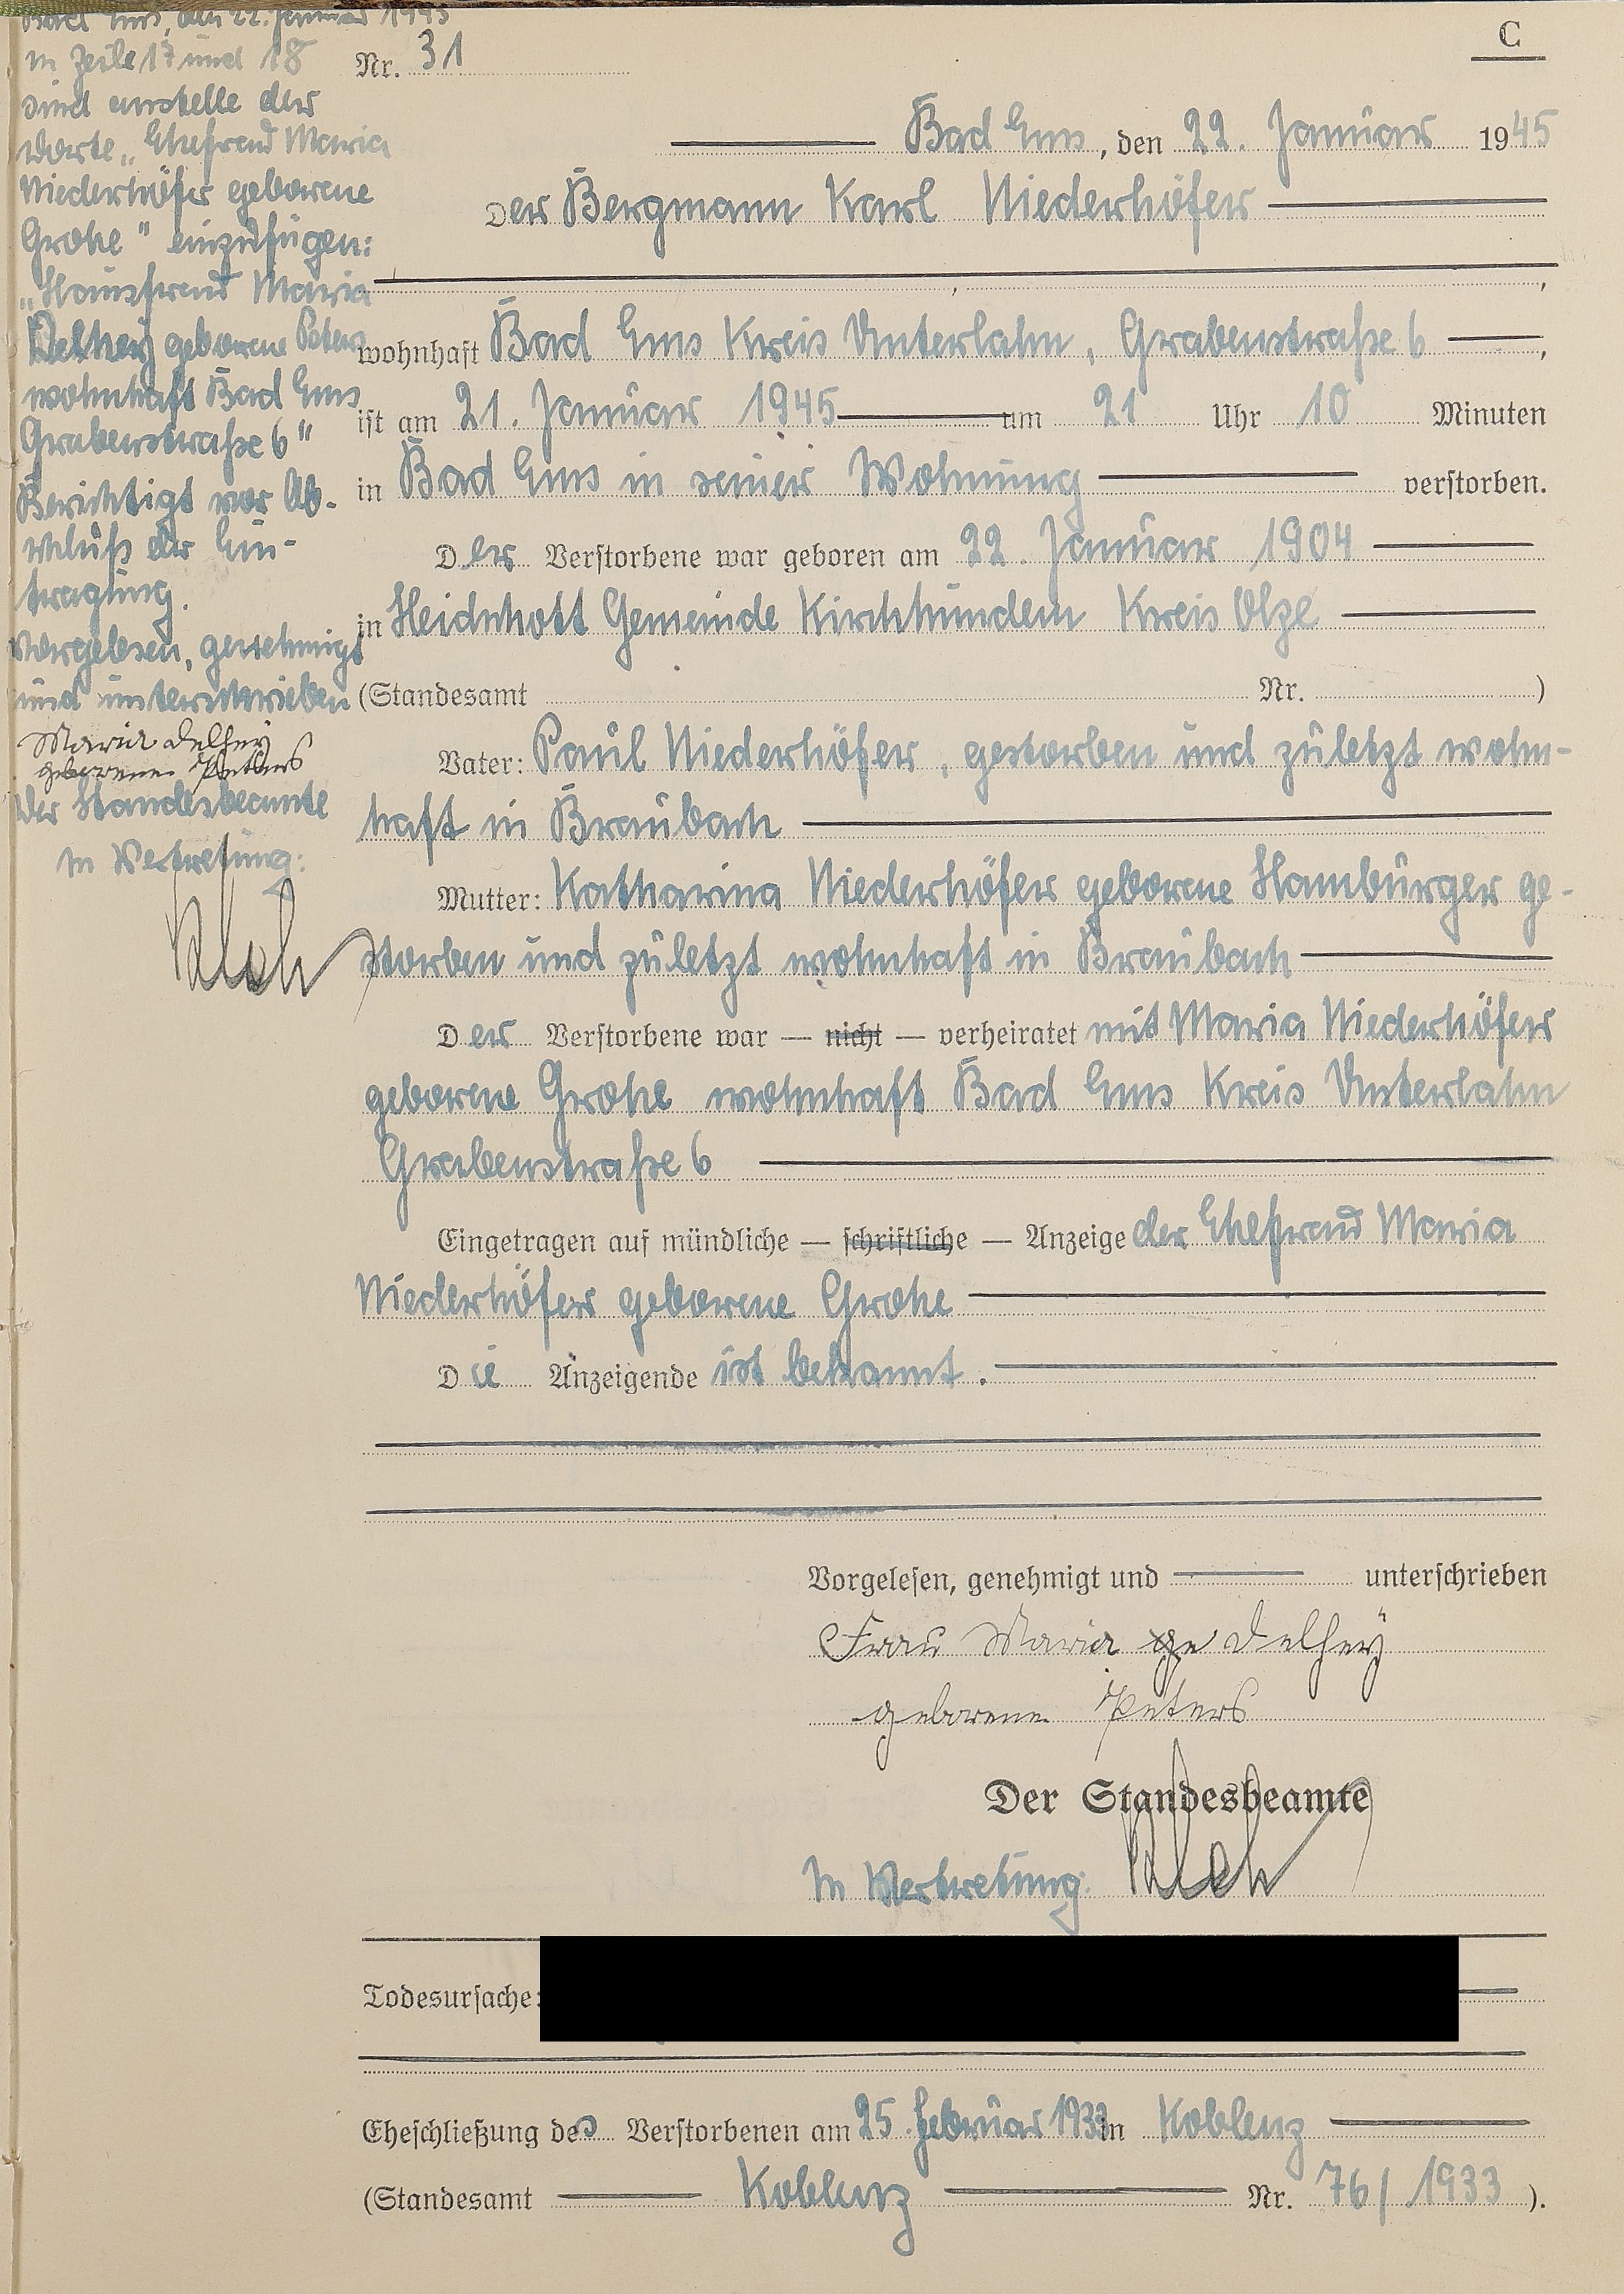 C
Nr. 31
Bad Ems, den 22. Januar 1945
Der Bergmann Karl Niederhöfer
wohnhaft Bad Ems Kreis Unterlahn, Grabenstraße 6,
ist am 21. Januar 1945 um 21 Uhr 10 Minuten
in Bad Ems in seiner Wohnung verstorben.
Der Verstorbene war geboren am 22. Januar 1904
in Heidschott Gemeinde Kirchhundem Kreis Olpe
(Standesamt Nr. )
Vater: Paul Niederhöfer, gestorben und zuletzt wohn-
haft in Braubach
Mutter: Katharina Niederhöfer geborene Hamburger ge-
storben und zuletzt wohnhaft in Braubach
Der Verstorbene war — nicht — verheiratet mit Maria Niederhöfer
geborene Grohe wohnhaft Bad Ems Kreis Unterlahn
Grabenstraße 6
Eingetragen auf mündliche — schriftliche — Anzeige der Ehefrau Maria
Niederhöfer geborene Grohe
Die Anzeigende ist bekannt.
Vorgelesen, genehmigt und unterschrieben
Frau Maria ge Delhey
geborene Peters
Der Standesbeamte
In Vertretung:
Todesursache:
Eheschließung des Verstorbenen am 25. Februar 1933 in Koblenz
(Standesamt Koblenz Nr. 76/1933 ).
Bad Ems, den 22. Januar 1945
In Zeile 17 und 18
sind anstelle der
Worte „Ehefrau Maria
Niederhöfer geborene
Grohe" einzufügen:
„Hausfrau Maria
Delhey geborene Peters
wohnhaft Bad Ems
Grabenstraße 6"
Berichtigt vor Ab-
schluß der Ein-
tragung.
Vorgelesen, genehmigt
und unterschrieben
Maria Delhey
geborene Peters
Der Standesbeamte
In Vertretung: